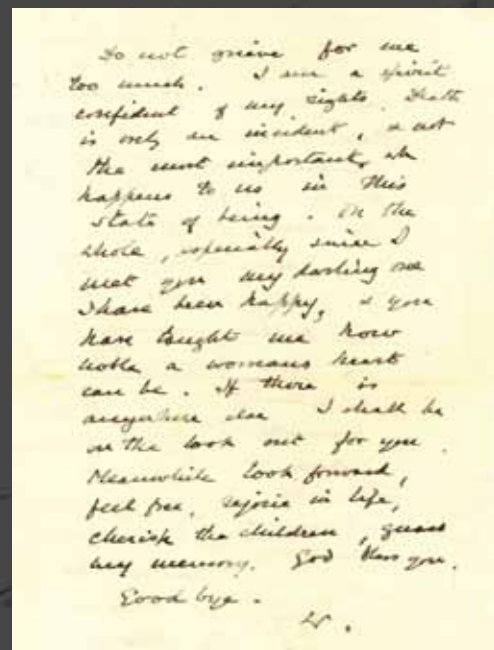 Do not grieve for me
too much. I am a spirit
confident of my rights. Death
is only an incident, & not
the most important wh
happens to us in this
state of being. On the
whole, especially since I
met you my darling one
I have been happy, & you
have taught me how
noble a womans heart
can be. If there is
anywhere else I shall be
on the look out for you.
Meanwhile look forward,
feel free, rejoice in life,
cherish the children, guard
my memory. God bless you.
Good bye.
W.